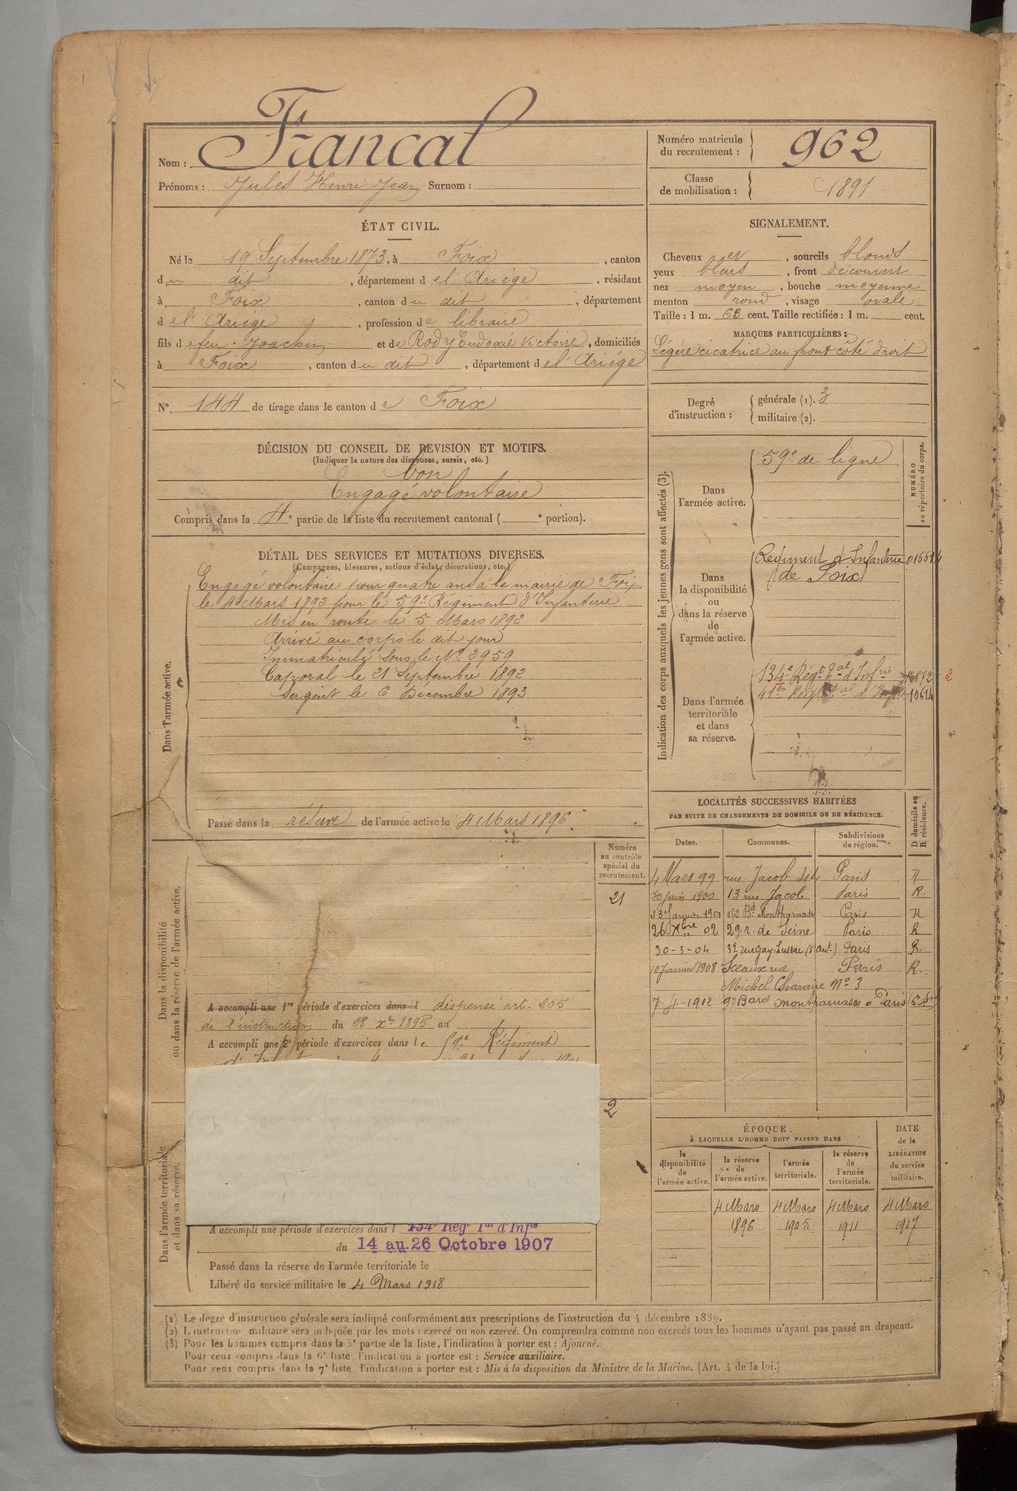 Nom : Francal
Prénoms : Jules Henri Jean Surnom :
Numéro matricule du recrutement : 962
Classe de mobilisation : 1891
ÉTAT CIVIL.
Né le 19 Septembre 1873, à Foix , canton
du dit , département de l'Ariége , résidant
à Foix , canton du dit , département
de l'Ariége , profession de libraire
fils de feu Joachin et de Rody Eudoxie Victoire , domiciliés
à Foix , canton du dit , département de l'Ariége
N°. 144 de tirage dans le canton de Foix
SIGNALEMENT.
Cheveux et , sourcils blonds
yeux bleus , front découvert
nez moyen , bouche moyenne
menton rond , visage ovale
Taille : 1 m. 68 cent. Taille rectifiée : 1 m. cent.
MARQUES PARTICULIÈRES :
Légère cicatrice au front côté droit
Degré d'instruction : générale (1). 3
militaire (2).
DÉCISION DU CONSEIL DE REVISION ET MOTIFS.
(Indiquer la nature des dispenses, sursis, etc.)
bon
Engagé volontaire
Compris dans la 4e partie de la liste du recrutement cantonal ( e portion).
DÉTAIL DES SERVICES ET MUTATIONS DIVERSES.
(Campagnes, blessures, actions d'éclat, décorations, etc.)
Dans l'armée active.
Engagé volontaire pour quatre ans à la mairie de Foix
le 4 Mars 1892 pour le 59e Régiment d'Infanterie
Mis en route le 5 Mars 1892
Arrivé au corps le dit jour
Immatriculé sous le N° 2959
Caporal le 21 Septembre 1892
Sergent le 6 Décembre 1893
Passé dans la réserve de l'armée active le 4 Mars 1896.
Indication des corps auxquels les jeunes gens sont affectés (3).
NUMÉRO au répertoire du corps.
Dans l'armée active.
59e de ligne
Dans la disponibilité ou dans la réserve de l'armée active.
Régiment d'Infanterie
de Foix
Dans l'armée territoriale et dans sa réserve.
134e Régt
LOCALITÉS SUCCESSIVES HABITÉES
PAR SUITE DE CHANGEMENTS DE DOMICILE OU DE RÉSIDENCE.
Dates. Communes. Subdivisions de région. D domicile ou R résidence.
4 Mars 99 rue Jacob 44 Paris R
30 juin 1900 13 rue Jacob Paris R.
23 Janvier 1901 162 Bd Montparnasse Paris R
26 Xbre 02 29 r. de Seine Paris R
30-3-04 32 rue Gay-Lussac Paris R.
10 Janvier 1908 Sceaux rue Paris R.
Michel Charaire N° 3
7-4-1912 Montparnasse Paris
Numéro au contrôle spécial du recrutement.
21
2
Dans la disponibilité ou dans la réserve de l'armée active.
A accompli une 1re période d'exercices dans l dispensé art. 205
de l'instruction du 28 Xbre 1895 au
A accompli une 2e période d'exercices dans le 59e Régiment
Dans l'armée territoriale et dans sa réserve.
A accompli une période d'exercices dans l 134e Rég Tal d'Infie
du 14 au 26 Octobre 1907
Passé dans la réserve de l'armée territoriale le
Libéré du service militaire le 4 Mars 1918
ÉPOQUE
A LAQUELLE L'HOMME DOIT PASSER DANS
la disponibilité de l'armée active. la réserve de l'armée active. l'armée territoriale. la réserve de l'armée territoriale. DATE de la LIBÉRATION du service militaire.
4 Mars 4 Mars 4 Mars 4 Mars
1896 1905 1911 1917
(1) Le degré d'instruction générale sera indiqué conformément aux prescriptions de l'instruction du 4 décembre 1889.
(2) L'instruction militaire sera indiquée par les mots : exercé ou non exercé. On comprendra comme non exercés tous les hommes n'ayant pas passé au drapeau.
(3) Pour les hommes compris dans la 5e partie de la liste, l'indication à porter est : Ajourné.
Pour ceux compris dans la 6e liste, l'indication à porter est : Service auxiliaire.
Pour ceux compris dans la 7e liste, l'indication à porter est : Mis à la disposition du Ministre de la Marine. (Art. 4 de la loi.)